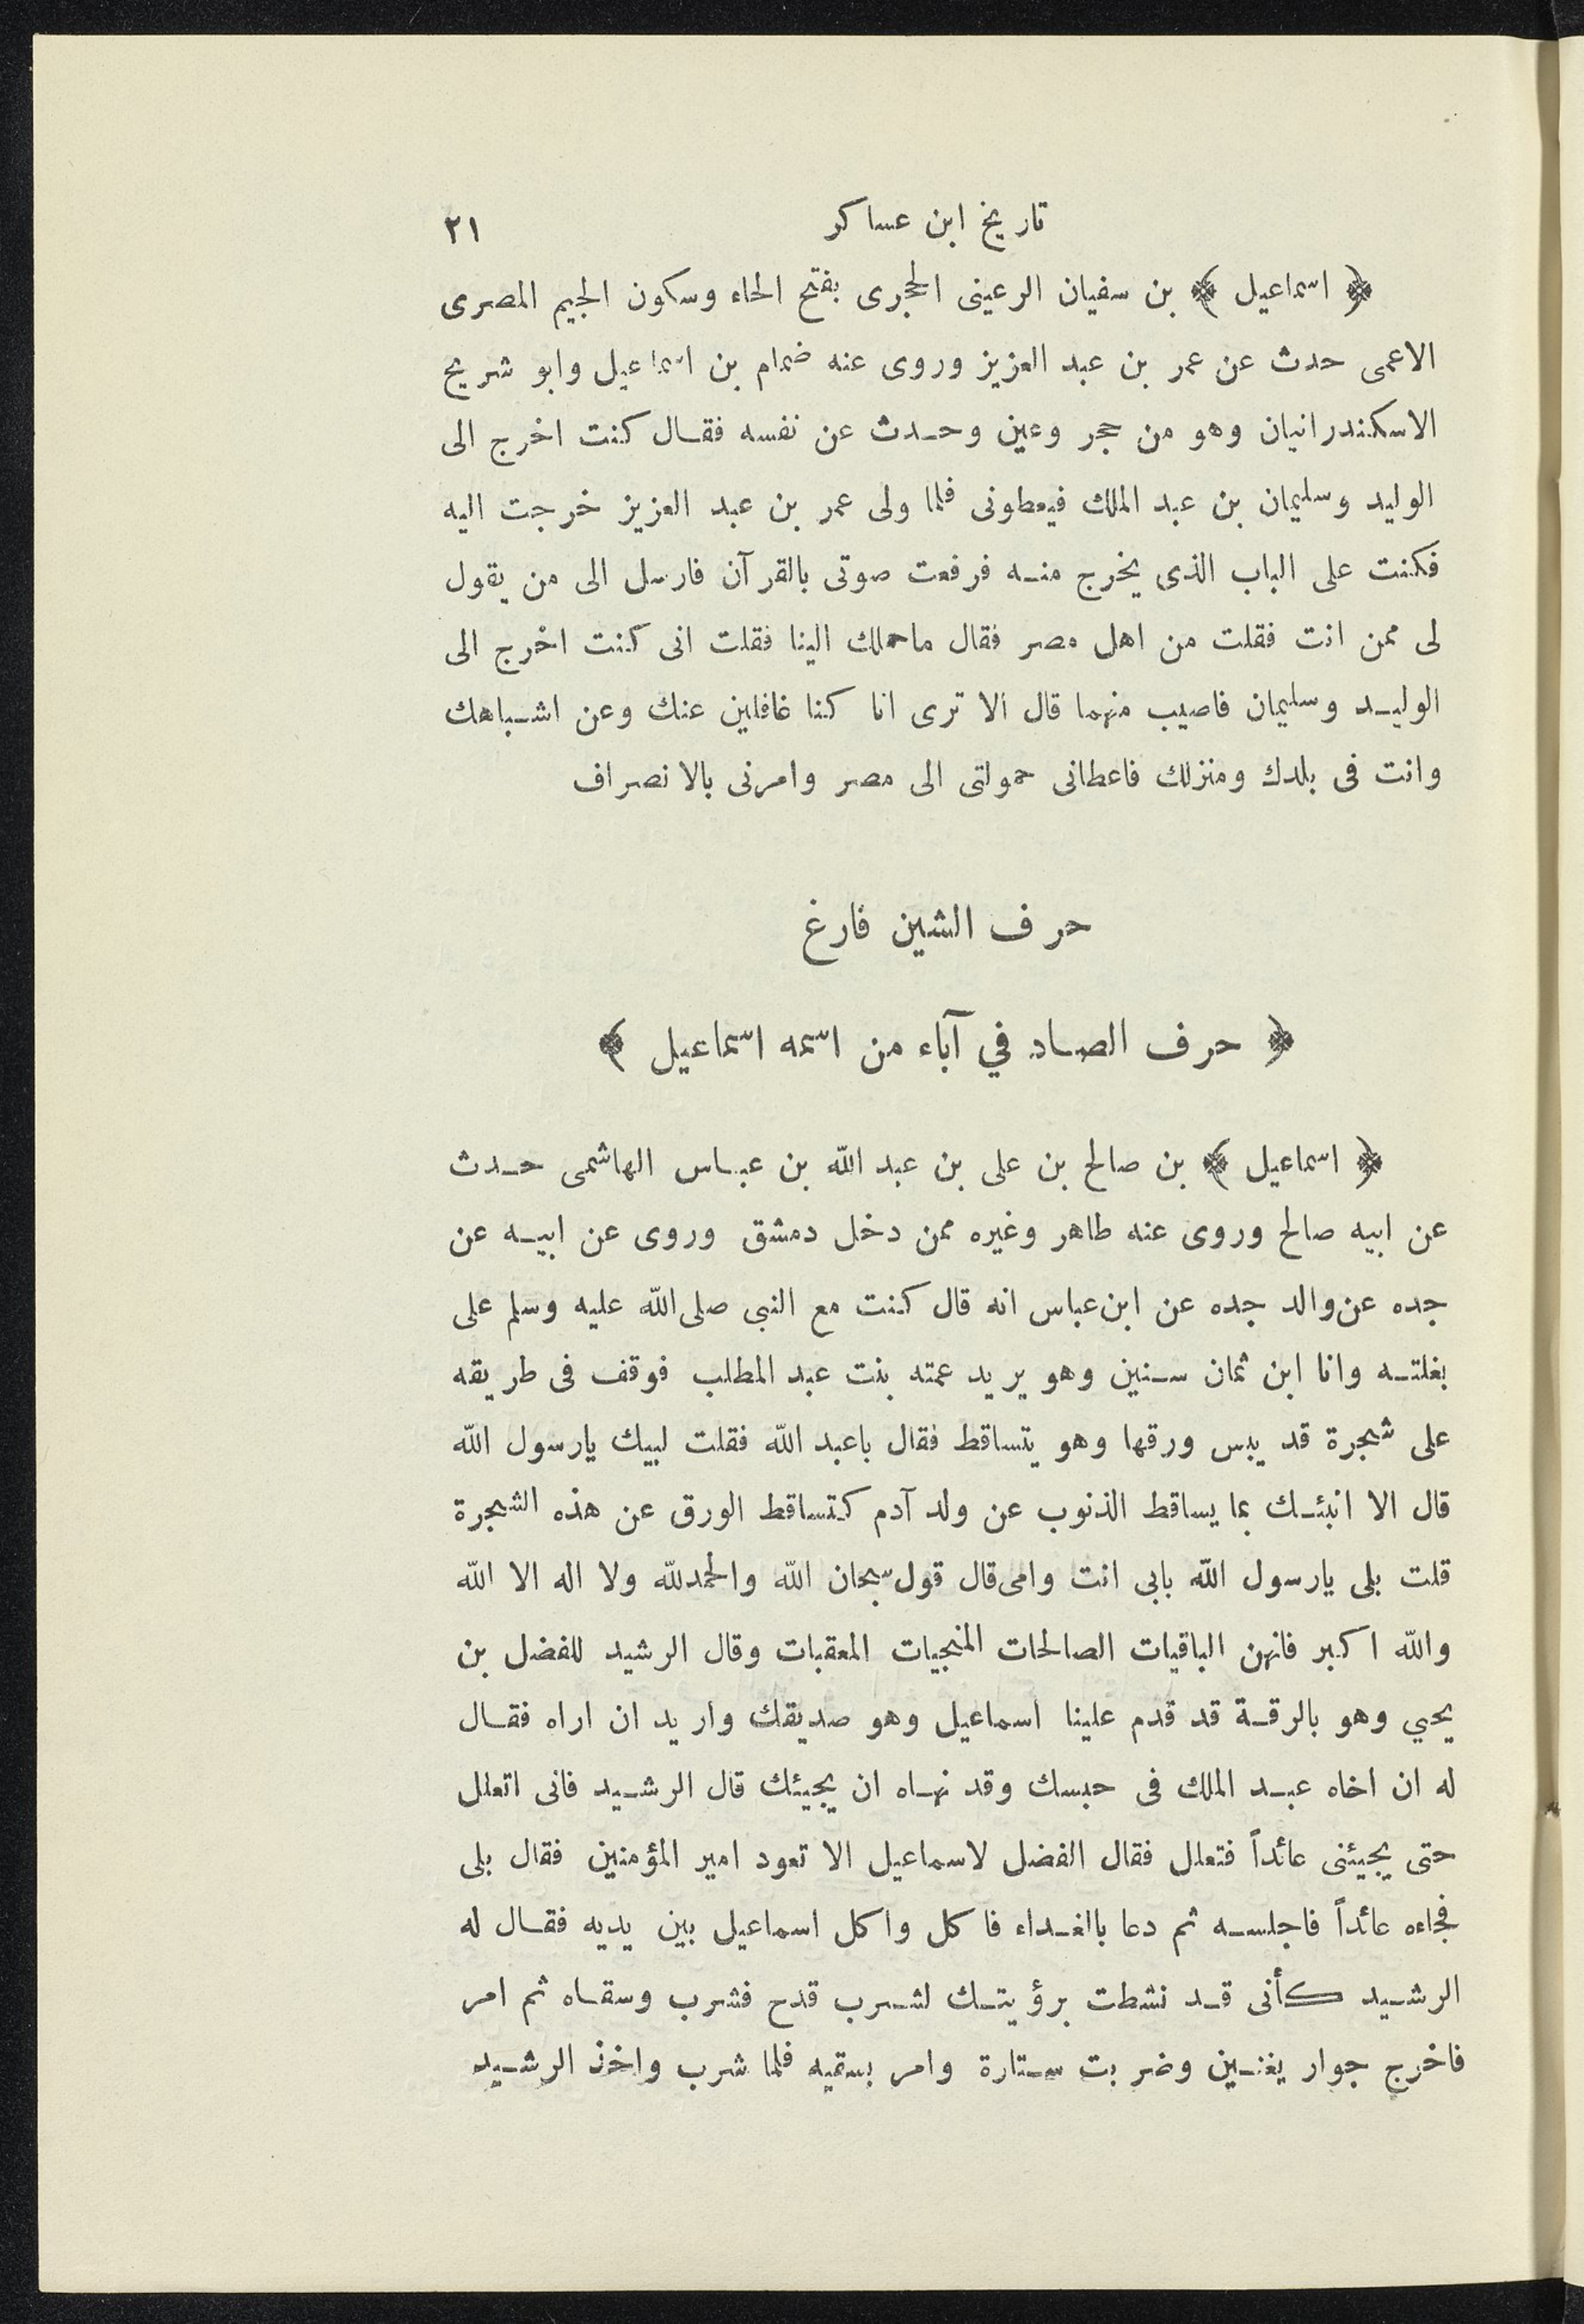 تاريخ ابن عساكر ٢١
﴿ اسماعيل ﴾ بن سفيان الرعينى الحجرى بفتح الحاء وسكون الجيم المصرى
الاعمى حدث عن عمر بن عبد العزيز وروى عنه ضمام بن اسماعيل وابو شريح
الاسكندرانيان وهو من حجر وعين وحدث عن نفسه فقال كنت اخرج الى
الوليد وسليمان بن عبد الملك فيعطونى فلما ولى عمر بن عبد العزيز خرجت اليه
فكنت على الباب الذى يخرج منه فرفعت صوتى بالقرآن فارسل الى من يقول
لى ممن انت فقلت من اهل مصر فقال ماحملك الينا فقلت انى كنت اخرج الى
الوليد وسليمان فاصيب منهما قال ألا ترى انا كنا غافلين عنك وعن اشباهك
وانت فى بلدك ومنزلك فاعطانى حمولتى الى مصر وامرنى بالانصراف
حرف الشين فارغ
﴿ حرف الصاد في آباء من اسمه اسماعيل ﴾
﴿ اسماعيل ﴾ بن صالح بن على بن عبد الله بن عباس الهاشمى حدث
عن ابيه صالح وروى عنه طاهر وغيره ممن دخل دمشق وروى عن ابيه عن
جده عن والد جده عن ابن عباس انه قال كنت مع النبى صلى الله عليه وسلم على
بغلته وانا ابن ثمان سنين وهو يريد عمته بنت عبد المطلب فوقف فى طريقه
على شجرة قد يبس ورقها وهو يتساقط فقال ياعبد الله فقلت لبيك يارسول الله
قال الا انبئك بما يساقط الذنوب عن ولد آدم كتساقط الورق عن هذه الشجرة
قلت بلى يارسول الله بابى انت وامى قال قول سبحان الله والحمدلله ولا اله الا الله
والله اكبر فانهن الباقيات الصالحات المنجيات المعقبات وقال الرشيد للفضل بن
يحيي وهو بالرقة قد قدم علينا اسماعيل وهو صديقك واريد ان اراه فقال
له ان اخاه عبد الملك فى حبسك وقد نهاه ان يجيئك قال الرشيد فانى اتعلل
حتى يجيئنى عائداً فتعلل فقال الفضل لاسماعيل الا تعود امير المؤمنين فقال بلى
فجاءه عائداً فاجلسه ثم دعا بالغداء فاكل واكل اسماعيل بين يديه فقال له
الرشيد كأنى قد نشطت برؤيتك لشرب قدح فشرب وسقاه ثم امر
فاخرج جوار يغنين وضربت ستارة وامر بسقيه فلما شرب واخذ الرشيد